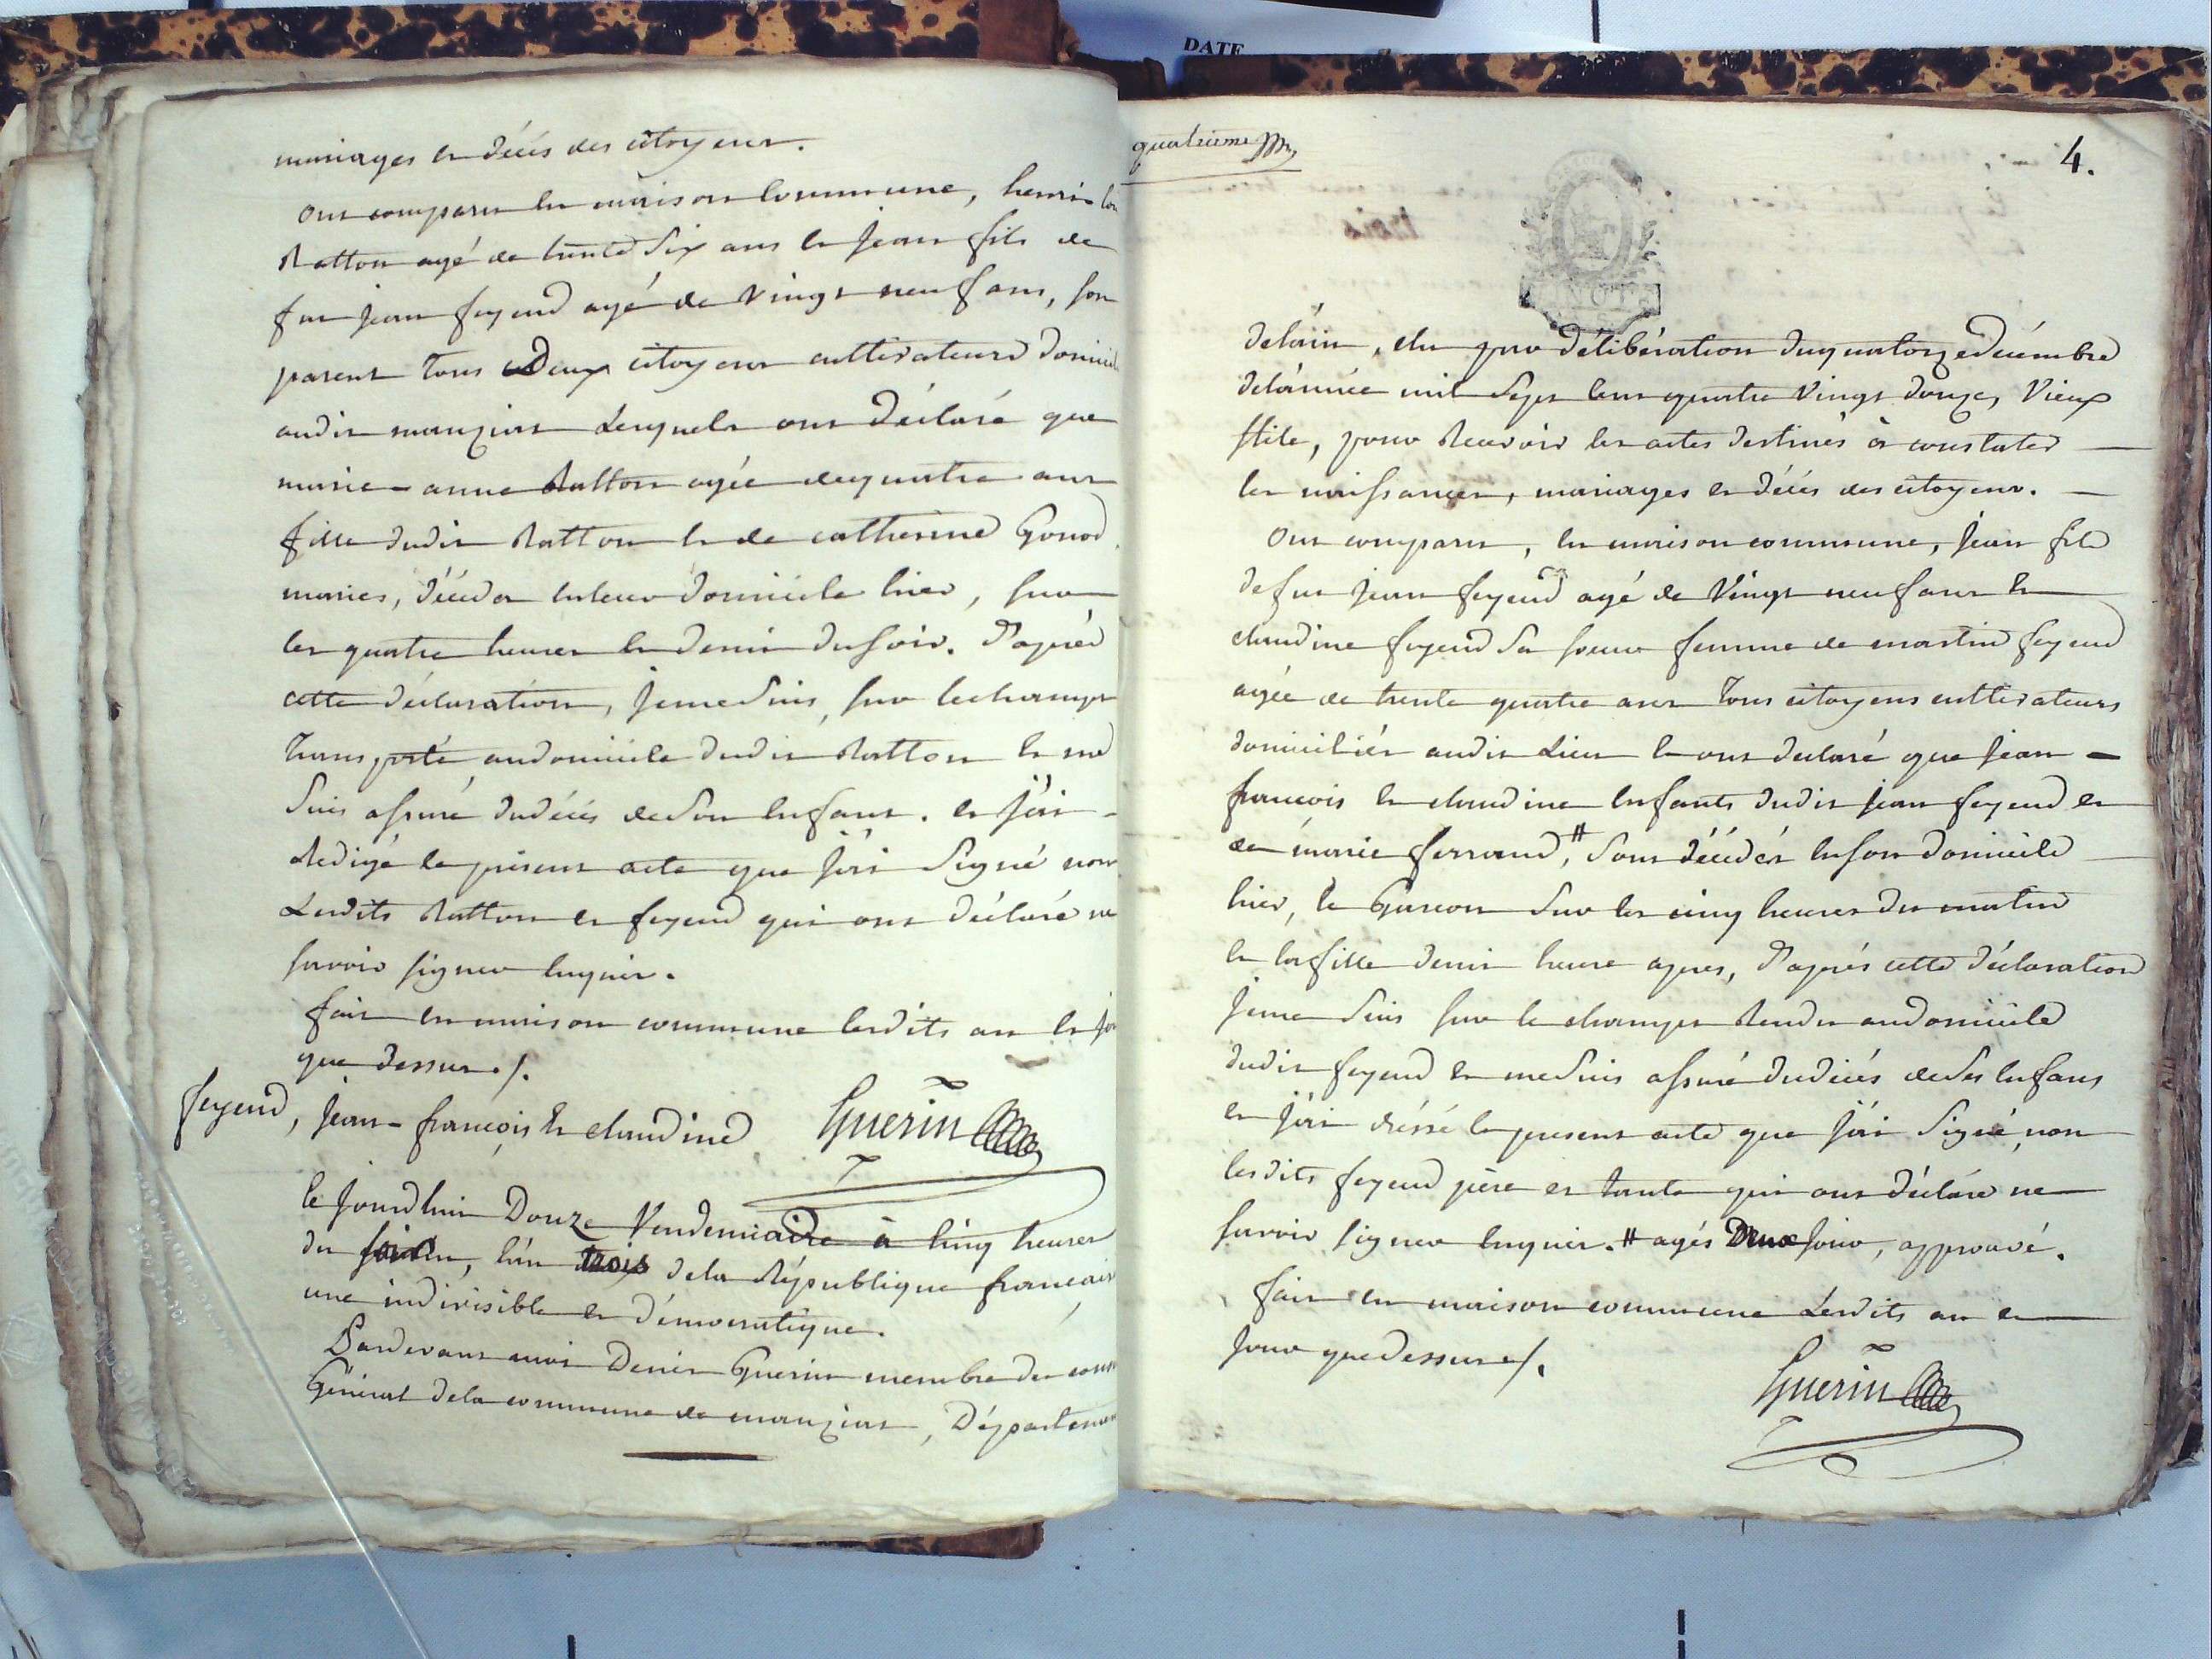 mariages et décès des citoyens.
Ont comparu en maison Commune, henri
Ratton agé de trente six ans et jean fils de
feu jean feyend agé de vingt neuf ans, son
parent tous deux citoyens cultivateurs domicil
audit manziat Lesquels ont déclaré que
marie-anne Ratton agée dequatre ans
fille dudit Ratton et de catherine Gonod
mariés, décéda enleur domicile hier, sur
les quatre heures et demie dusoir. D'après
cette déclaration, jemesuis, sur lechamps
transporté audomicile dudit Ratton et me
suis assuré dudécès deson enfant. et j'ai
redigé le présent acte que j'ai Signé non
Lesdits Ratton et feyend qui ont déclaré ne
savoir signer enquis.
fait en maison commune lesdits an et jo
que dessus ./.
feyend, jean-françois et claudine
Guerin
le jourdhui Douze Vendemiaire à cinq heures
du soir, l'an trois dela République françai
une indivisible et démocratique.
Pardevant moi Denis Guerin membre du cons
Général dela commune de manziat, Départemen
DATE
quatrieme
4.
delain, élu par délibération duquatorze décembre
delannée mil sept cent quatre vingt douze, vieux
stile, pour recevoir les actes destinés à constater
les naissances, mariages et décès des citoyens.
Ont comparu, en maison commune, jean fils
defeu jean feyend agé de vingt neuf ans et
claudine feyend sa soeur femme de martin feyend
agée de trente quatre ans tous citoyens cultivateurs
domiciliés audit Lieu et ont declaré que jean-
françois et claudine enfants dudit jean feyend et
de marie ferrand, # sont décédés enson domicile
hier, le Garcon sur les cinq heures du matin
et lafille demie heure apres, D'après cette déclaration
jeme suis sur le champs rendu audomicile
dudit feyend et mesuis assuré dudécés deses enfans
et j'ai dréssé le present acte que j'ai signé, non
lesdits feyend père et tante qui ont déclaré ne
savoir signer enquis. # agés Deux jours, approuvé.
fait en maison commune Lesdits an et
jour quedessus ./.
Guerin